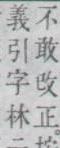 不敢改正
義引字林